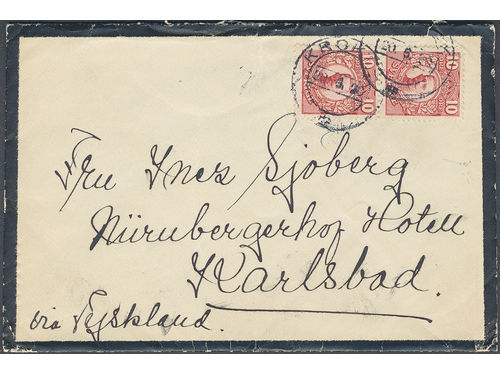 KROK
10 10
Fru Ines Sjöberg
Nürnbergerhof Hotell
Karlsbad.
via Tyskland.